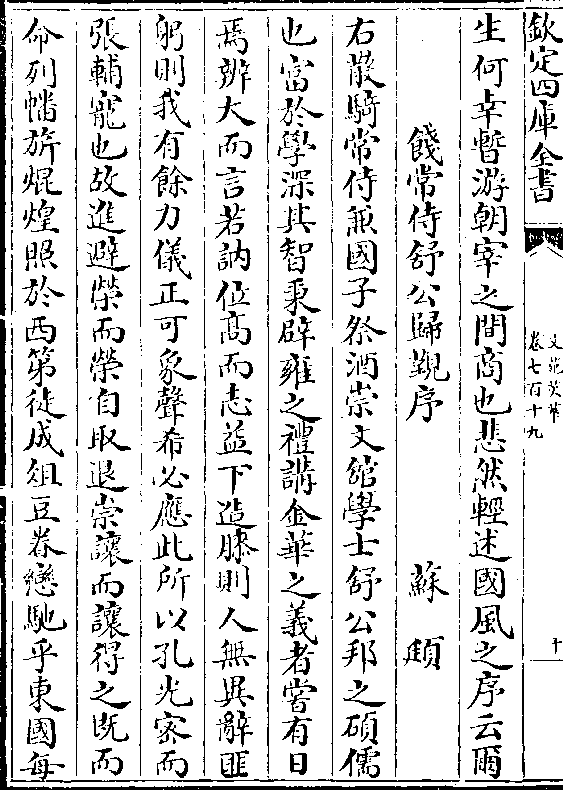 欽定四庫全書
文苑英華
卷七百十九
十
生何幸暫游朝宰之間商也悲然輕述國風之序云爾
餞常侍舒公歸覲序　蘇頲
右散騎常侍兼國子祭酒崇文館學士舒公邦之碩儒
也富於學深其智秉辟雍之禮講金華之義者嘗有日
焉辨大而言若訥位髙而志益下造膝則人無異辭匪
躬則我有餘力儀正可象聲希必應此所以孔光密而
張輔寵也故進避榮而榮自取退崇讓而讓得之既而
命列幡旂焜煌照於西第徒成俎豆眷戀馳乎東國每